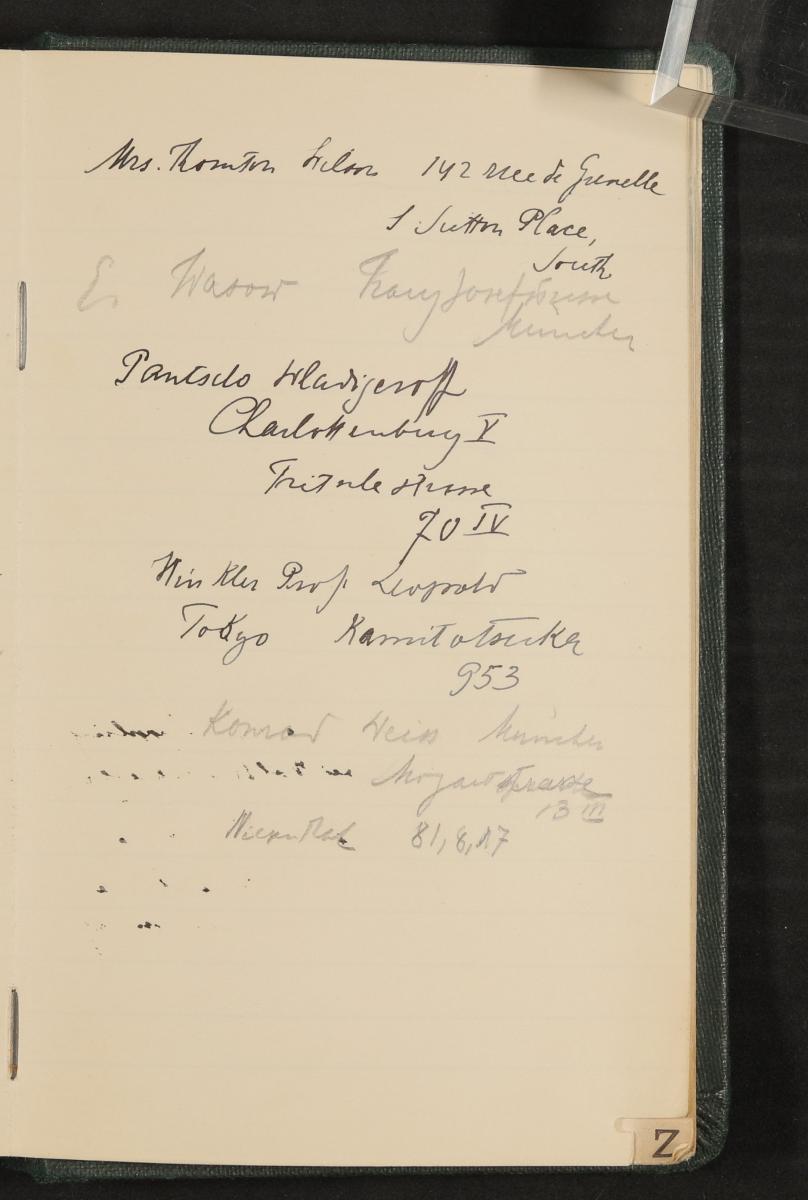 Mrs. Thornton Wilson 142 rue de Grenelle
1 Sutton Place,
South
E. Wasow Franz Josefstrasse
München
Pantscho Wladigeroff
Charlottenburg V
Fritsche strasse
70 IV
Winkler Prof. Leopold
Tokyo Kamitotsuka
953
Konrad Weiss München
Mozartstrasse
13 III
81,8,17
Z